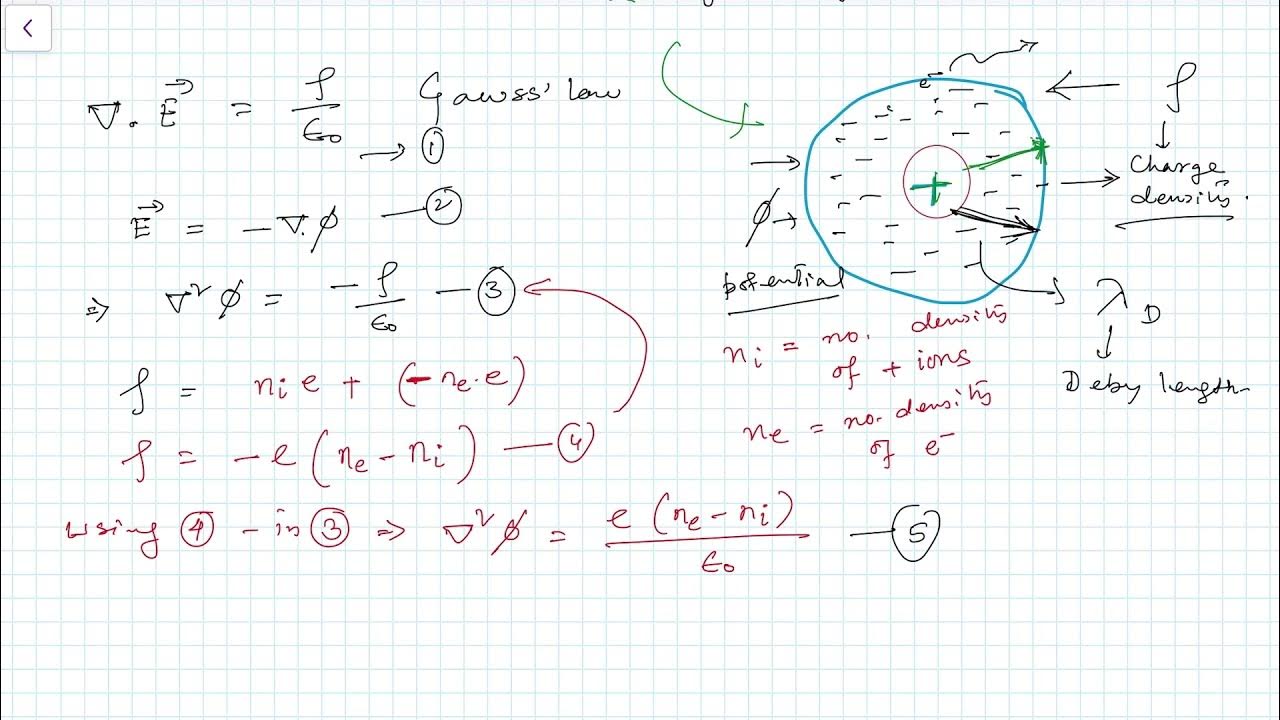 ∇. E⃗ = ρ/ε₀ Gauss' law
→ ①
E⃗ = -∇.φ — ②
⇒ ∇²φ = -ρ/ε₀ — ③
ρ = nᵢ e + (-nₑ.e)
ρ = -e (nₑ - nᵢ) — ④
using ④ - in ③ ⇒ ∇²φ = e (nₑ - nᵢ)/ε₀ — ⑤
e⁻
ρ
Charge
density.
+
φ
potential
λ_D
Deby length
nᵢ = no. density
of + ions
nₑ = no. density
of e⁻